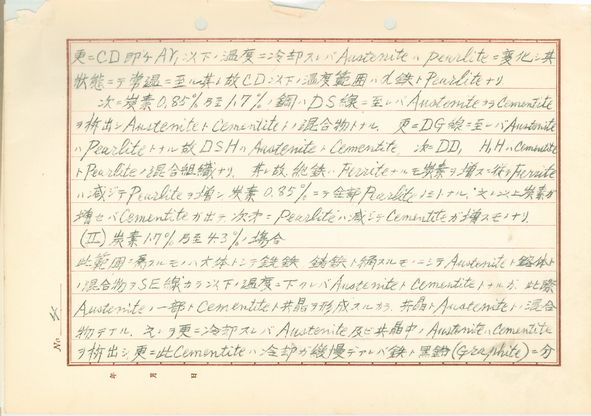 更ニCD即チAr₁以下ノ温度ニ冷却スレバAusteniteハpearliteニ変化シ其
状態ニテ常温ニ至ル其ノ故CD以下ノ温度範囲ハ大鉄トPearliteナリ
次ニ炭素0.85%乃至1.7%ノ鋼ハDS線ニ至レバAusteniteヨリCementite
ヲ析出シAusteniteトCementiteトノ混合物トナル 更ニDG線ニ至レバAustenite
ハPearliteトナル故DSHハAusteniteトCementite 次ニDD, H,HハCementite
トPearliteノ混合組織ナリ 其ノ故純鉄ハFerriteナルモ炭素ヲ増スニ従ヒFerrite
ハ減ジテPearliteヲ増シ炭素0.85%ニテ全部Pearliteノミトナル 之以上炭素ガ
増セバCementiteガ出テ次第ニPearliteハ減ジテCementiteガ増スモノナリ
(II) 炭素1.7%乃至4.3%ノ場合
此範囲ニ属スルモノハ大体トシテ銑鉄 鋳鉄ト称スルモノニシテAusteniteト鎔体ト
ノ混合物ヲSE線カラ以下ノ温度ニ下グレバAusteniteトCementiteトナルガ 此際
Austeniteノ一部トCementiteト共晶ヲ形成スルカラ 共晶トAusteniteトノ混合
物デアル 之ヲ更ニ冷却スレバAustenite及ビ共晶中ノAusteniteハCementite
ヲ析出シ更ニ此Cementiteハ冷却ガ緩慢デアレバ鉄ト黒鉛(Graphite)ニ分
No.
年 月 日